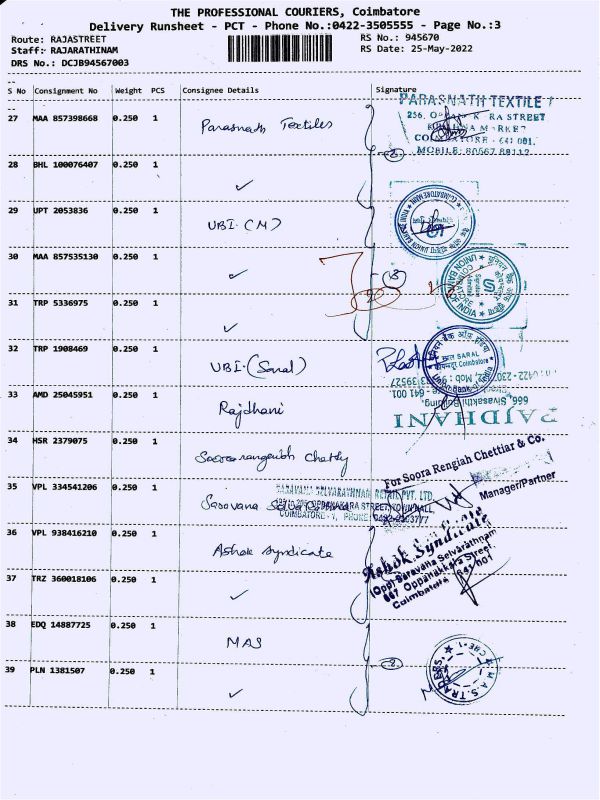 THE PROFESSIONAL COURIERS, Coimbatore
Delivery Runsheet - PCT - Phone No.:0422-3505555 - Page No.:3
Route: RAJASTREET
RS No.: 945670
Staff: RAJARATHINAM
RS Date: 25-May-2022
DRS No.: DCJB94567003
S No Consignment No Weight PCS Consignee Details Signature
27 MAA 857398668 0.250 1 Parasnath Textiles
PARASNATH TEXTILE
256, RA STREET
MARKET
641 001.
MOBILE: 80667 88112
28 BHL 100076407 0.250 1 ✓
2
29 UPT 2053836 0.250 1 UBI. (M)
30 MAA 857535130 0.250 1 ✓
3
UNION BANK OF INDIA
COIMBATORE
31 TRP 5336975 0.250 1 ✓
32 TRP 1908469 0.250 1 UBI. (Saral)
SARAL
Coimbatore
Union Bank
33 AMD 25045951 0.250 1 Rajdhani
RAJDHANI
666, Sivasakthi Building,
641 001.
34 HSR 2379075 0.250 1
For Soora Rengiah Chettiar & Co.
Manager/Partner
35 VPL 334541206 0.250 1
SARAVANA SELVARATHNAM RETAIL PVT. LTD.
OPPANAKARA STREET, TOWNHALL,
COIMBATORE - 1, PHONE
36 VPL 938416210 0.250 1 Ashok Syndicate
Ashok Syndicate
(Opp) Saravana Selvarathnam
667 Oppanakkara Street,
Coimbatore 641 001
37 TRZ 360018106 0.250 1 ✓
38 EDQ 14887725 0.250 1 MAS
2
M.A.S. TRADERS
CBE-1
39 PLN 1381507 0.250 1 ✓